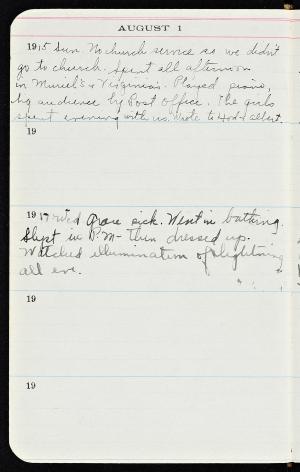 AUGUST 1
1915 Sun. No church service so we didn't
go to church. Spent all afternoon
in Muriel's & Virginia's. Played piano,
big audience by Post Office. The girls
spent evening with us. Wrote to & Albert.
19
1917 Wed Grace sick. Went in bathing.
Slept in P.M. - then dressed up.
Watched illumination of lightning
all eve.
19
19